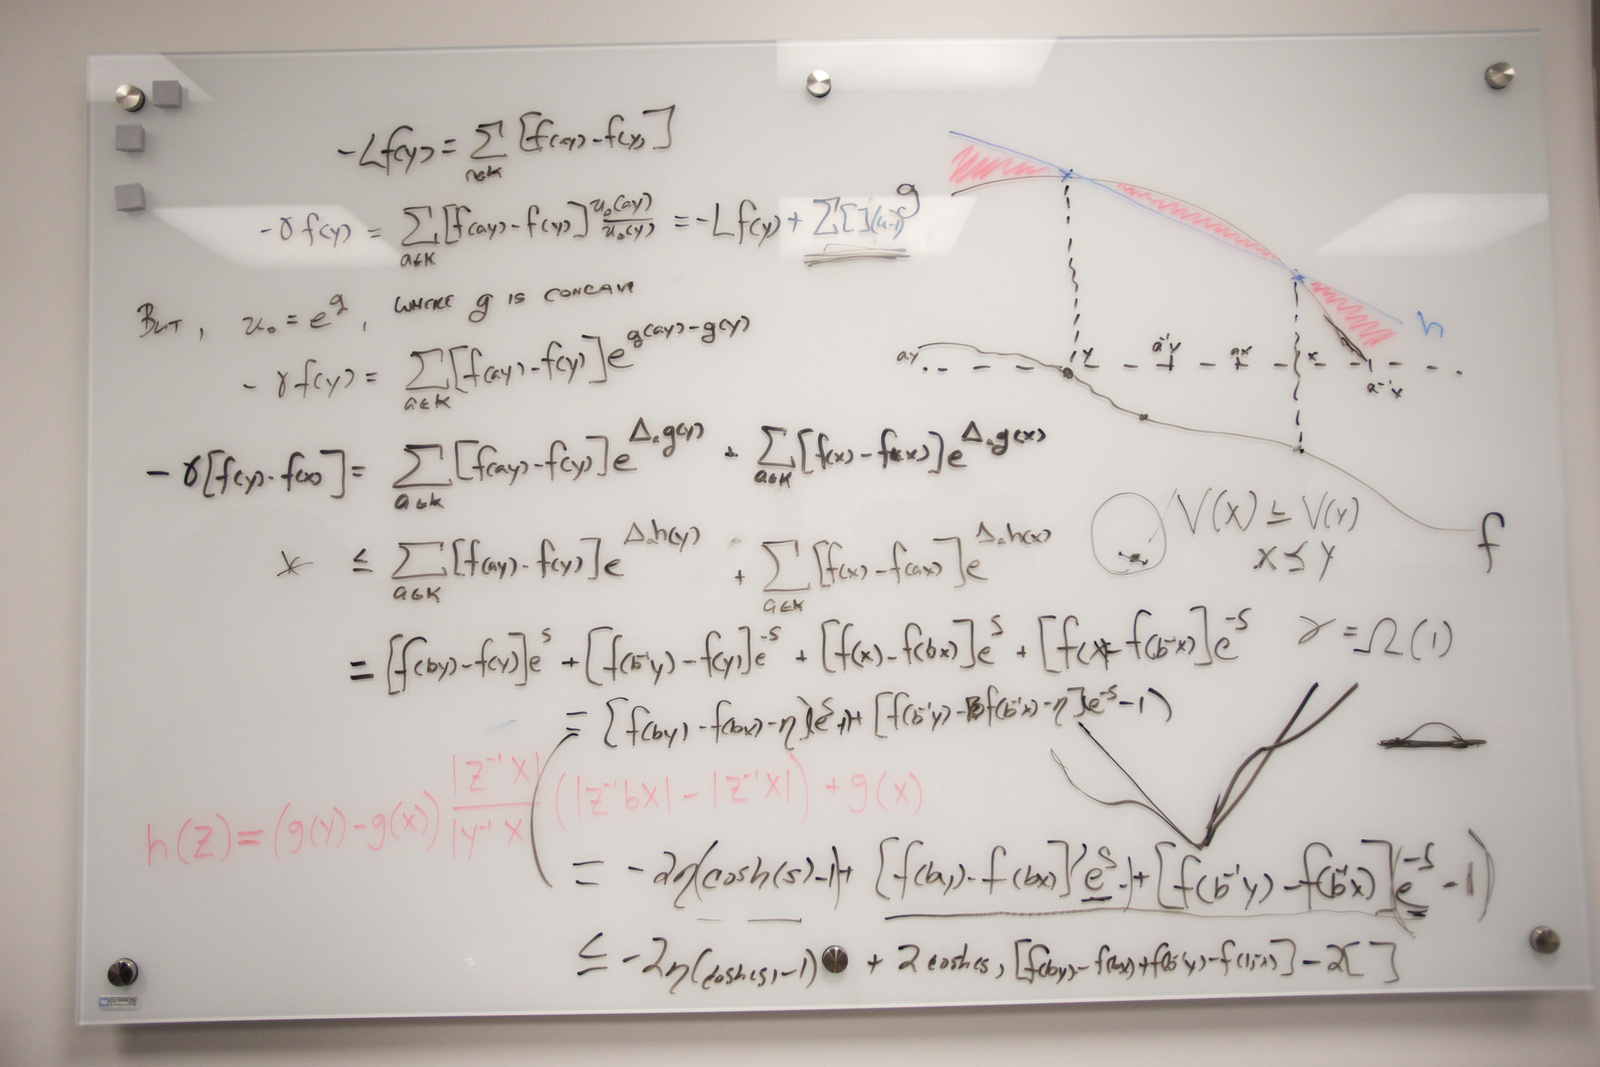 -Lf(y) = Σ_{a∈K} [f(ay) - f(y)]
-γf(y) = Σ_{a∈K} [f(ay) - f(y)] u₀(ay)/u₀(y) = -Lf(y) + Σ[ ]
BUT, u₀ = e^g, WHERE g IS CONCAVE
-γf(y) = Σ_{a∈K} [f(ay) - f(y)] e^{g(ay) - g(y)}
-γ[f(y) - f(x)] = Σ_{a∈K} [f(ay) - f(y)] e^{Δₐg(y)} + Σ_{a∈K} [f(x) - f(ax)] e^{Δₐg(x)}
≤ Σ_{a∈K} [f(ay) - f(y)] e^{Δₐh(y)} + Σ_{a∈K} [f(x) - f(ax)] e^{Δₐh(x)}
= [f(by) - f(y)]e^s + [f(b⁻¹y) - f(y)]e^{-s} + [f(x) - f(bx)]e^s + [f(x) - f(b⁻¹x)]e^{-s}
= [f(by) - f(bx) - η](e^s - 1) + [f(b⁻¹y) - f(b⁻¹x) - η](e^{-s} - 1)
h(z) = (g(y) - g(x)) |z⁻¹x|/|y⁻¹x| (|z⁻¹bx| - |z⁻¹x|) + g(x)
= -2η(cosh(s) - 1) + [f(by) - f(bx)](e^s - 1) + [f(b⁻¹y) - f(b⁻¹x)](e^{-s} - 1)
≤ -2η(cosh(s) - 1) + 2cosh(s) [f(by) - f(bx) + f(b⁻¹y) - f(b⁻¹x)] - 2[ ]
h
ay y a⁻¹y ax x a⁻¹x
f
V(x) ≤ V(y)
x ≤ y
γ = Ω(1)